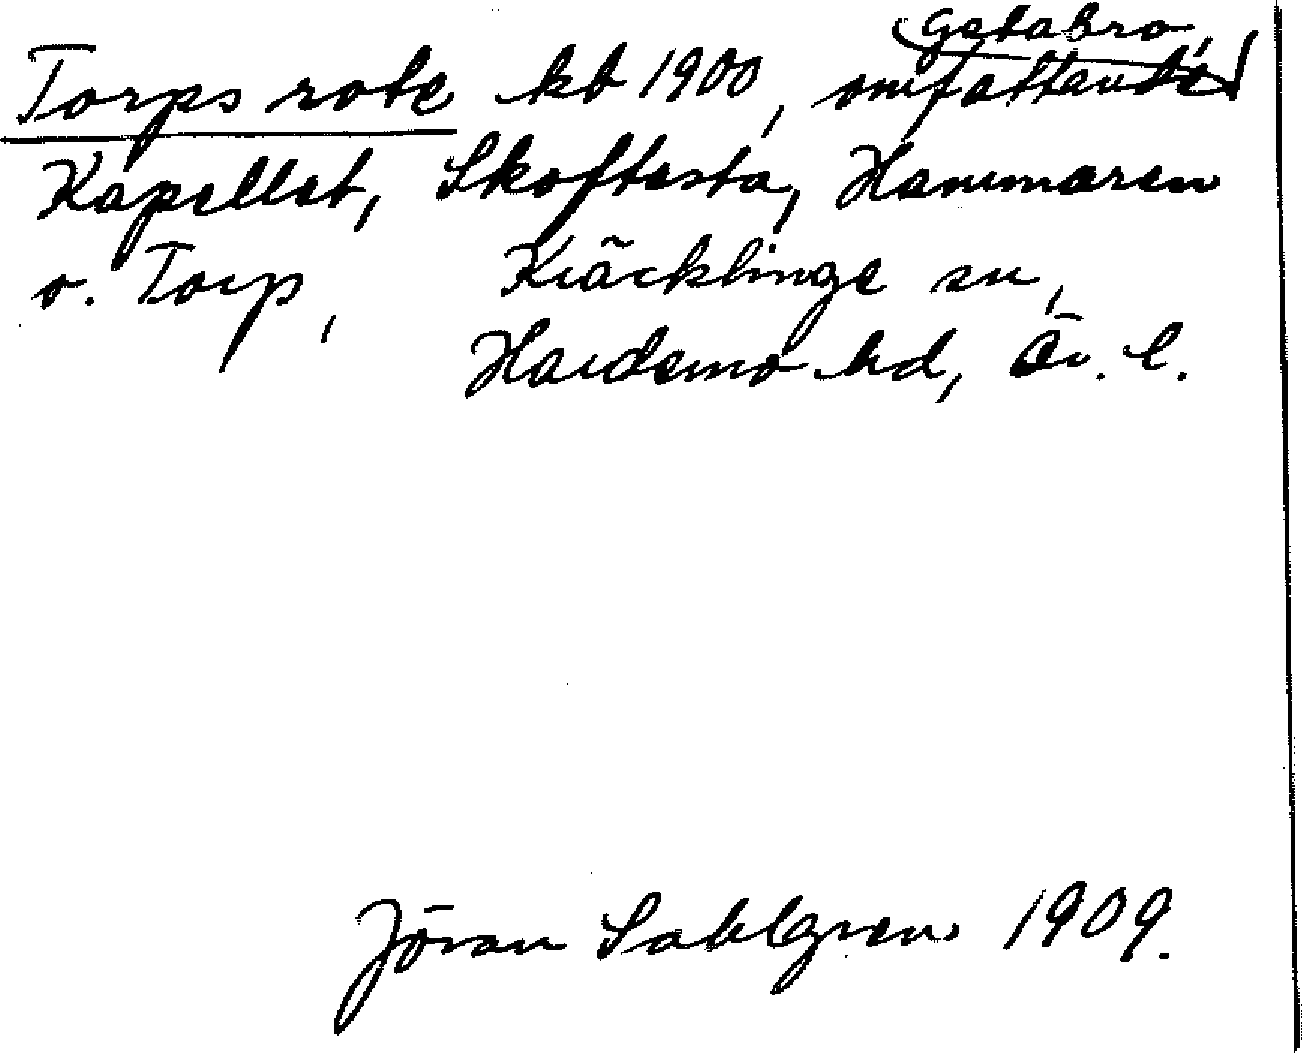 Getabro,
Torps rote kb 1900, omfattande
Kapellet, Skoftesta, Hammaren
o. Torp, Kräcklinge sn,
Hardemo hd, Ör. l.
Jöran Sahlgren 1909.